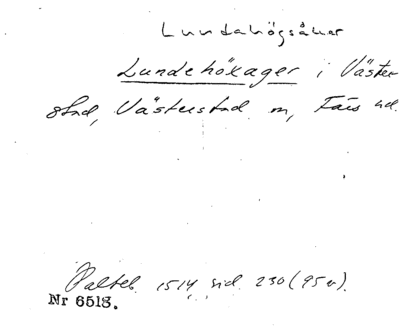 Lundahögsåker
Lundehöxager i Väster
stad, Västerstad m, Färs hd.
Palteb. 1514 sid. 230 (95v).
Nr 6513.